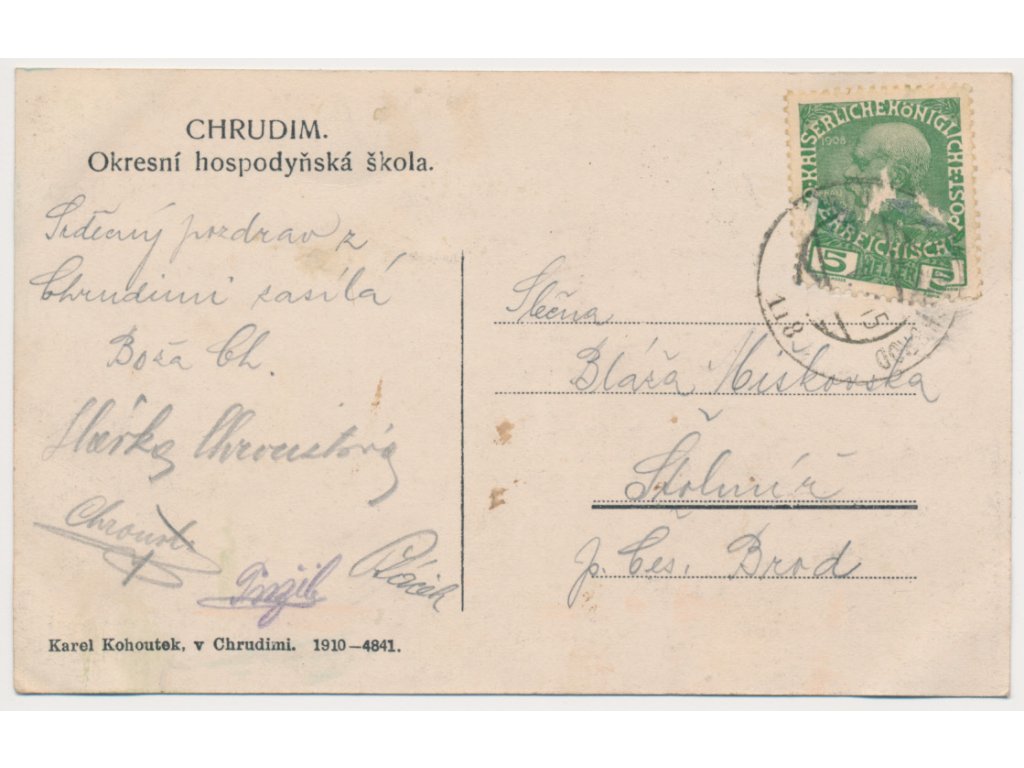 CHRUDIM.
Okresní hospodyňská škola.
Srdečný pozdrav z
Chrudimi zasílá
Boža Ch.
Mářka Chroustová
Chroust.
Karel Kohoutek, v Chrudimi. 1910—4841.
KAISERLICHE KÖNIGLICHE POST
1908
5 HELLER 5
118
Slečna
Blářa Miškovská
Štolmíř
p. Čes. Brod